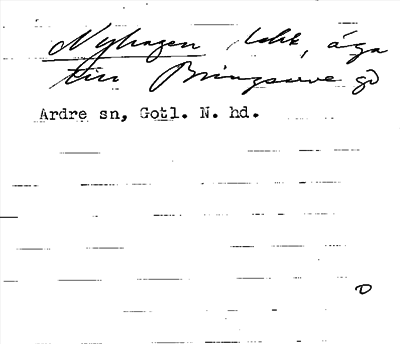 Nyhagen, lokt, äga
till Bringsarve gd
Ardre sn, Gotl. N. hd.